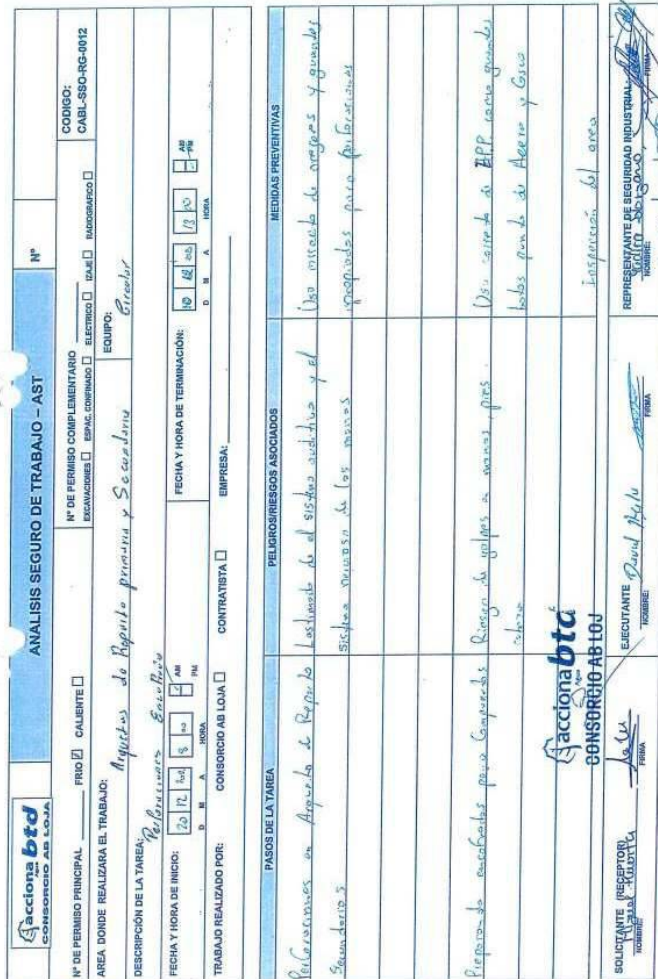 acciona btd
Agua
CONSORCIO AB LOJA
ANALISIS SEGURO DE TRABAJO – AST
Nº
Nº DE PERMISO PRINCIPAL FRIO CALIENTE
Nº DE PERMISO COMPLEMENTARIO
EXCAVACIONES ESPAC. CONFINADO ELECTRICO IZAJE RADIOGRAFICO
CODIGO:
CABL-SSO-RG-0012
AREA DONDE REALIZARA EL TRABAJO: Arquetas de Reparto primario y Secundario
EQUIPO: Circular
DESCRIPCIÓN DE LA TAREA: Perforaciones
FECHA Y HORA DE INICIO: 20 12 8 00 AM PM
D M A HORA
FECHA Y HORA DE TERMINACIÓN: AM PM
D M A HORA
TRABAJO REALIZADO POR: CONSORCIO AB LOJA CONTRATISTA EMPRESA:
PASOS DE LA TAREA
PELIGROS/RIESGOS ASOCIADOS
MEDIDAS PREVENTIVAS
Perforaciones en Arqueta de Reparto
Secundarios
Lastimado de el sistema auditivo y el
sistema nervioso de las manos
Uso correcto de orejeras y guantes
apropiados para perforaciones
Preparando encofrados para Compuertas
Riesgo de golpes a manos, pies
Uso correcto de EPP como guantes
botas punta de Acero y Casco
Inspección del area
acciona btd
Agua
CONSORCIO AB LOJ
SOLICITANTE (RECEPTOR)
NOMBRE: FIRMA
EJECUTANTE David
NOMBRE: FIRMA
REPRESENTANTE DE SEGURIDAD INDUSTRIAL
NOMBRE: FIRMA